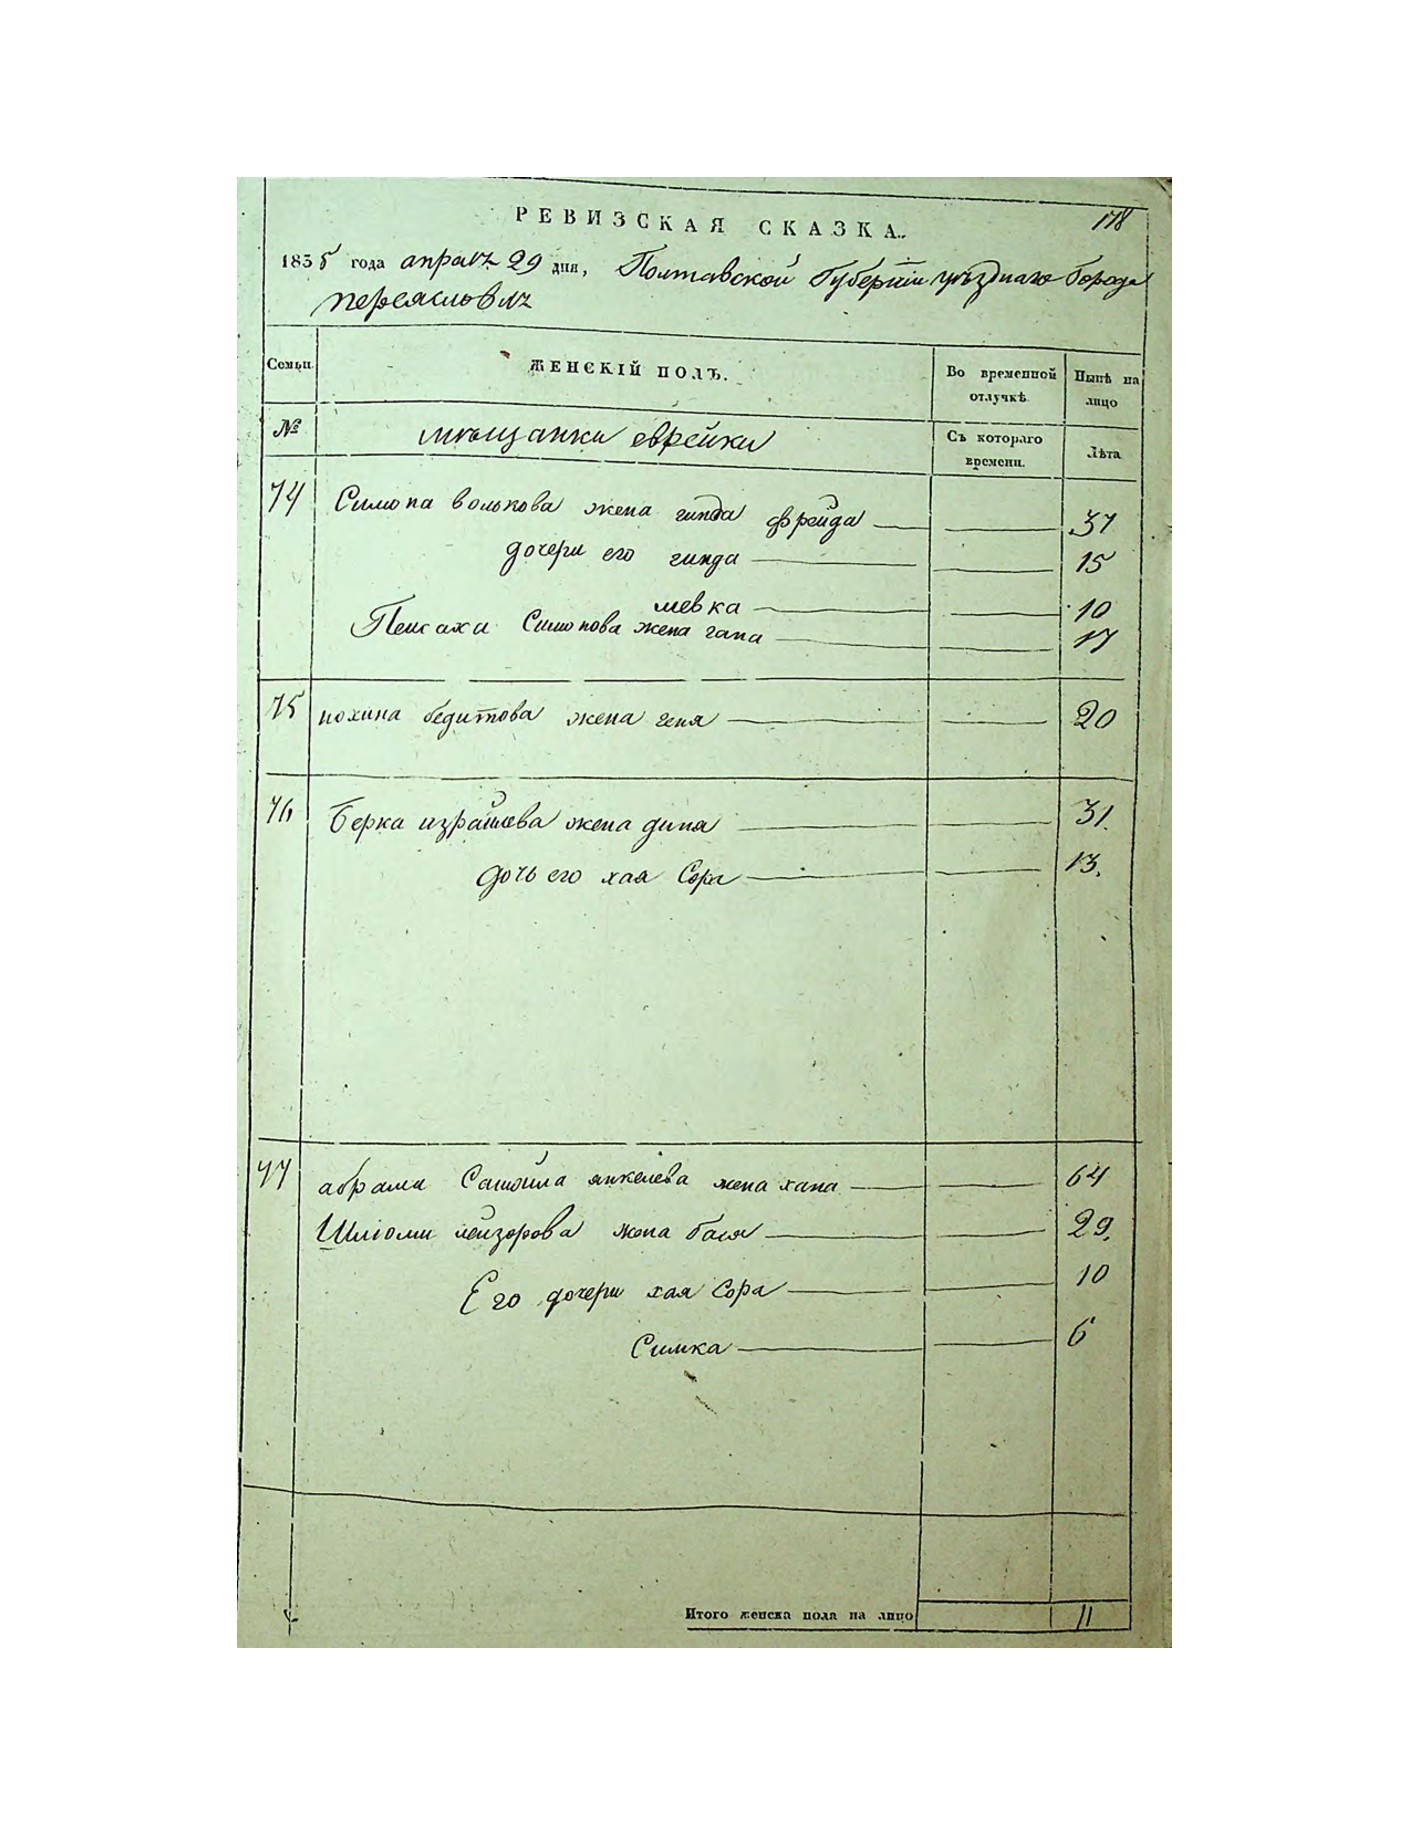 РЕВИЗСКАЯ СКАЗКА.
178
1835 года апреля 29 дня, Полтавской Губернии уѣзднаго города
переяславля
Семьи
ЖЕНСКІЙ ПОЛЪ.
Во временной отлучкѣ
Нынѣ на лицо
№
мѣщанки еврейки
Съ котораго времени.
Лѣта
74 Симона волькова жена гинда фрейда 37
дочери его гинда 15
мевка 10
Пейсаха Симонова жена гана 17
75 нохима жена геня 20
76 Берка израилева жена дина 31.
дочь его хая Сора 13.
77 абрама Самойла янкелева жена хана 64
Шліоми лейзорова жена бася 29.
Его дочери хая Сора 10
Симка 6
Итого женска пола на лицо 11